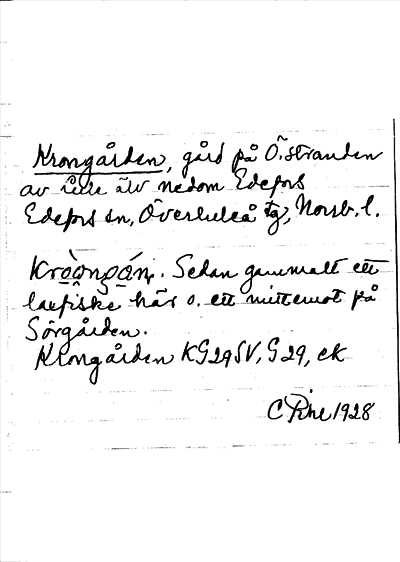 Krongården, gård på Ö. stranden
av Lule älv nedom Edefors
Edefors sn, Överluleå tg, Norrb. l.
Sedan gammalt ett
laxfiske här o. ett mittemot på
Sörgården.
Krongården KG29SV, G29, ek
1928